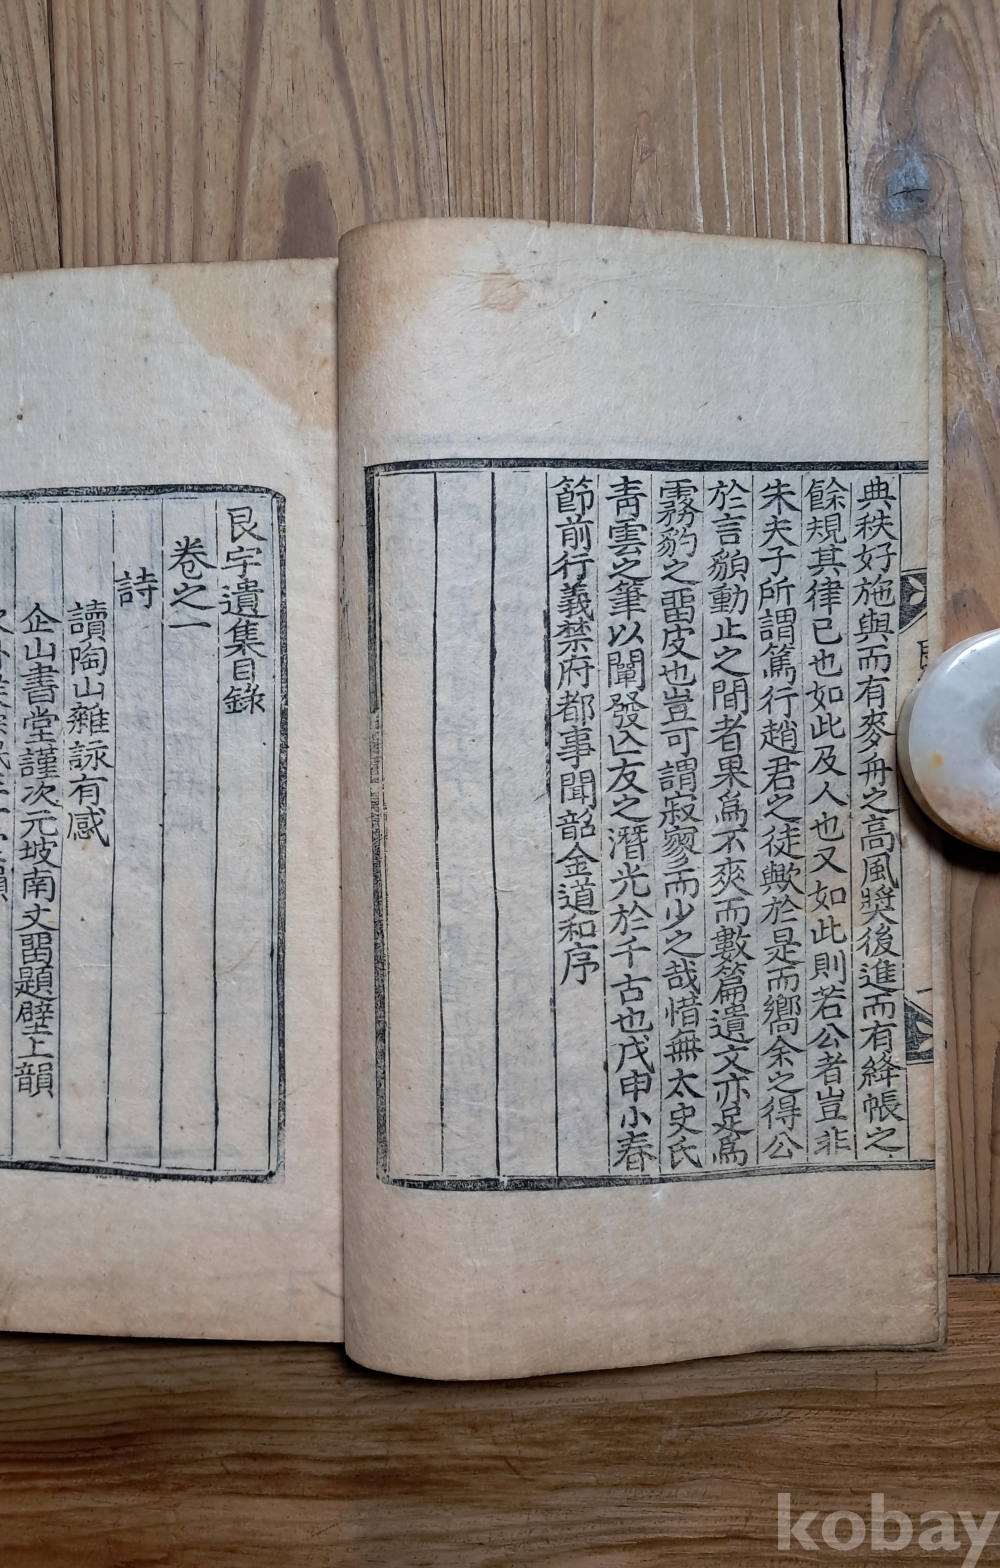 典秩好施與而有麥舟之高風奬後進而有絳帳之
餘規其律己也如此及人也又如此則若公者豈非
朱夫子所謂篤行趙君之徒歟於是而嚮余之得公
於言貌動止之間者果爲不爽而數篇遺文亦足爲
霧豹之留皮也豈可謂寂寥而少之哉惜無太史氏
靑雲之筆以闡發亡友之潛光於千古也戊申小春
節前行義禁府都事聞韶金道和序
艮宇遺集目錄
卷之一
詩
讀陶山雜詠有感
企山書堂謹次元坡南丈留題壁上韻
kobay